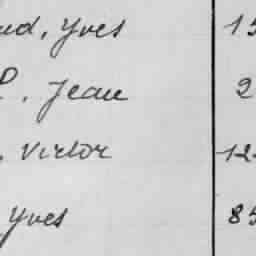 ud, Yves 15
P. Jean 2
, Victor 12
Yves 85